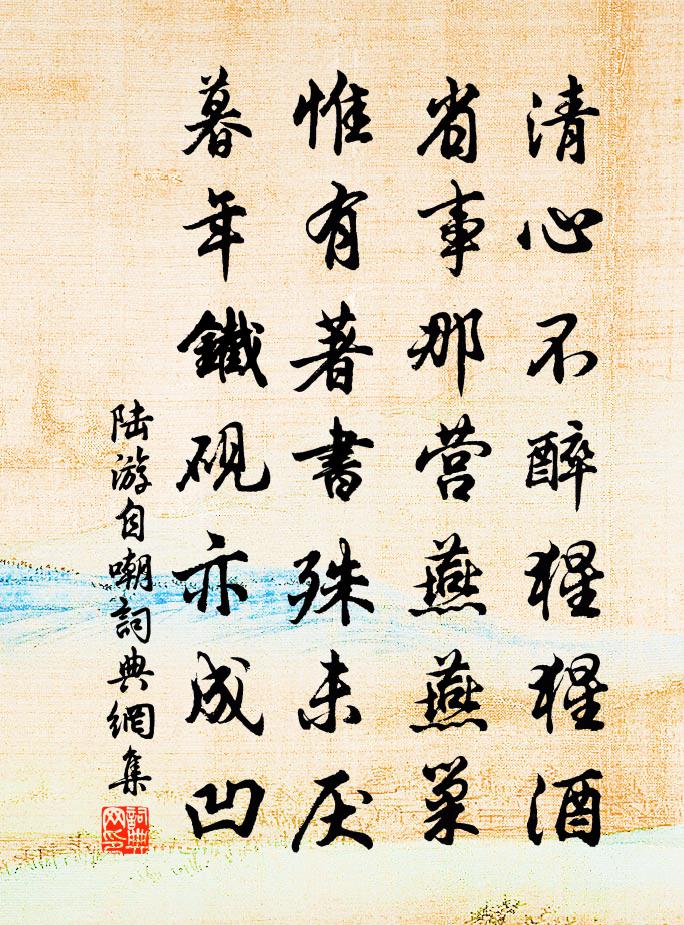 清心不醉猩猩酒
省事那营燕燕巢
惟有著書殊未厌
暮年鐵砚亦成凹
陆游自嘲詞典網集
詞典网印